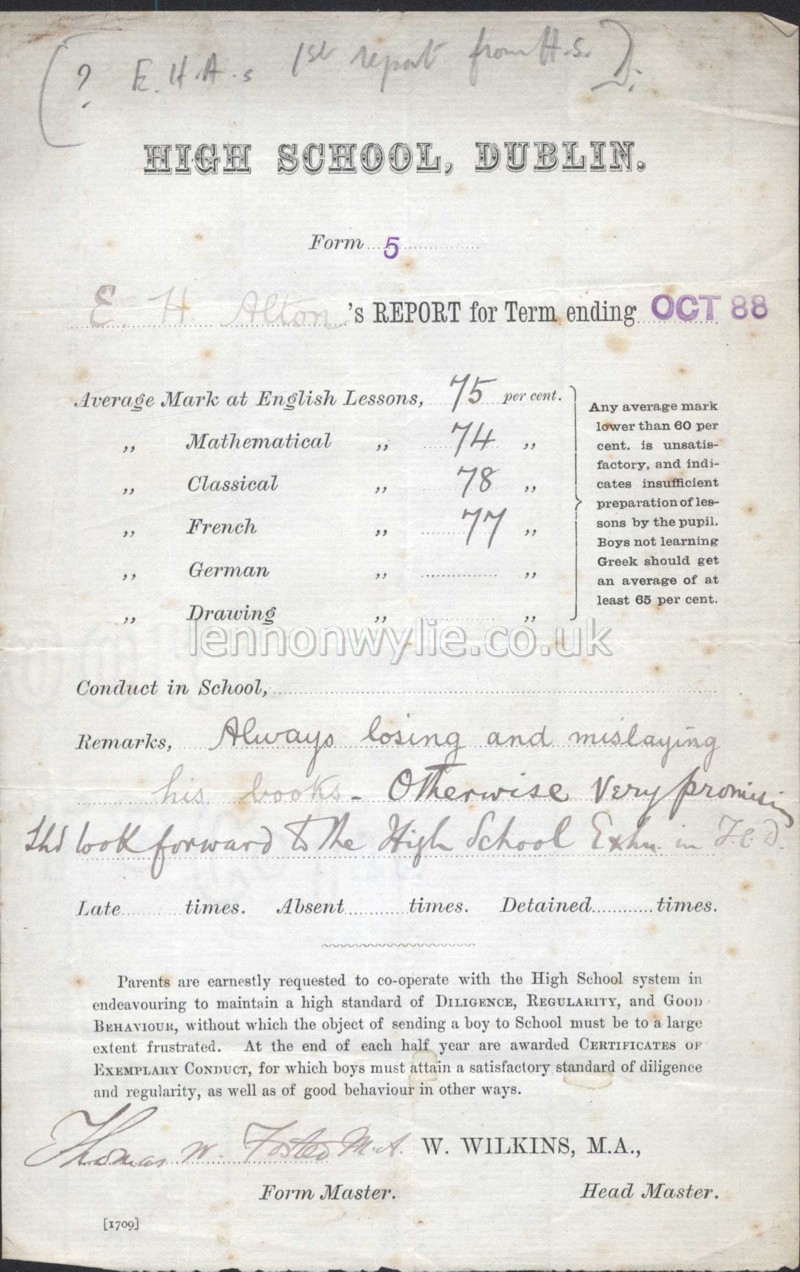 (? E.H.A.s 1st report from H.S.)
HIGH SCHOOL, DUBLIN.
Form 5
E. H. Alton's REPORT for Term ending OCT 88
Average Mark at English Lessons, 75 per cent.
„ Mathematical „ 74 „
„ Classical „ 78 „
„ French „ 77 „
„ German „ „
„ Drawing „ „
Any average mark
lower than 60 per
cent. is unsatis-
factory, and indi-
cates insufficient
preparation of les-
sons by the pupil.
Boys not learning
Greek should get
an average of at
least 65 per cent.
lennonwylie.co.uk
Conduct in School,
Remarks, Always losing and mislaying
his books - Otherwise very promising
Shd look forward to the High School Exhn. in T.C.D.
Late times. Absent times. Detained times.
Parents are earnestly requested to co-operate with the High School system in
endeavouring to maintain a high standard of DILIGENCE, REGULARITY, and GOOD
BEHAVIOUR, without which the object of sending a boy to School must be to a large
extent frustrated. At the end of each half year are awarded CERTIFICATES OF
EXEMPLARY CONDUCT, for which boys must attain a satisfactory standard of diligence
and regularity, as well as of good behaviour in other ways.
Thomas W. Foster M.A. W. WILKINS, M.A.,
Form Master. Head Master.
[1709]